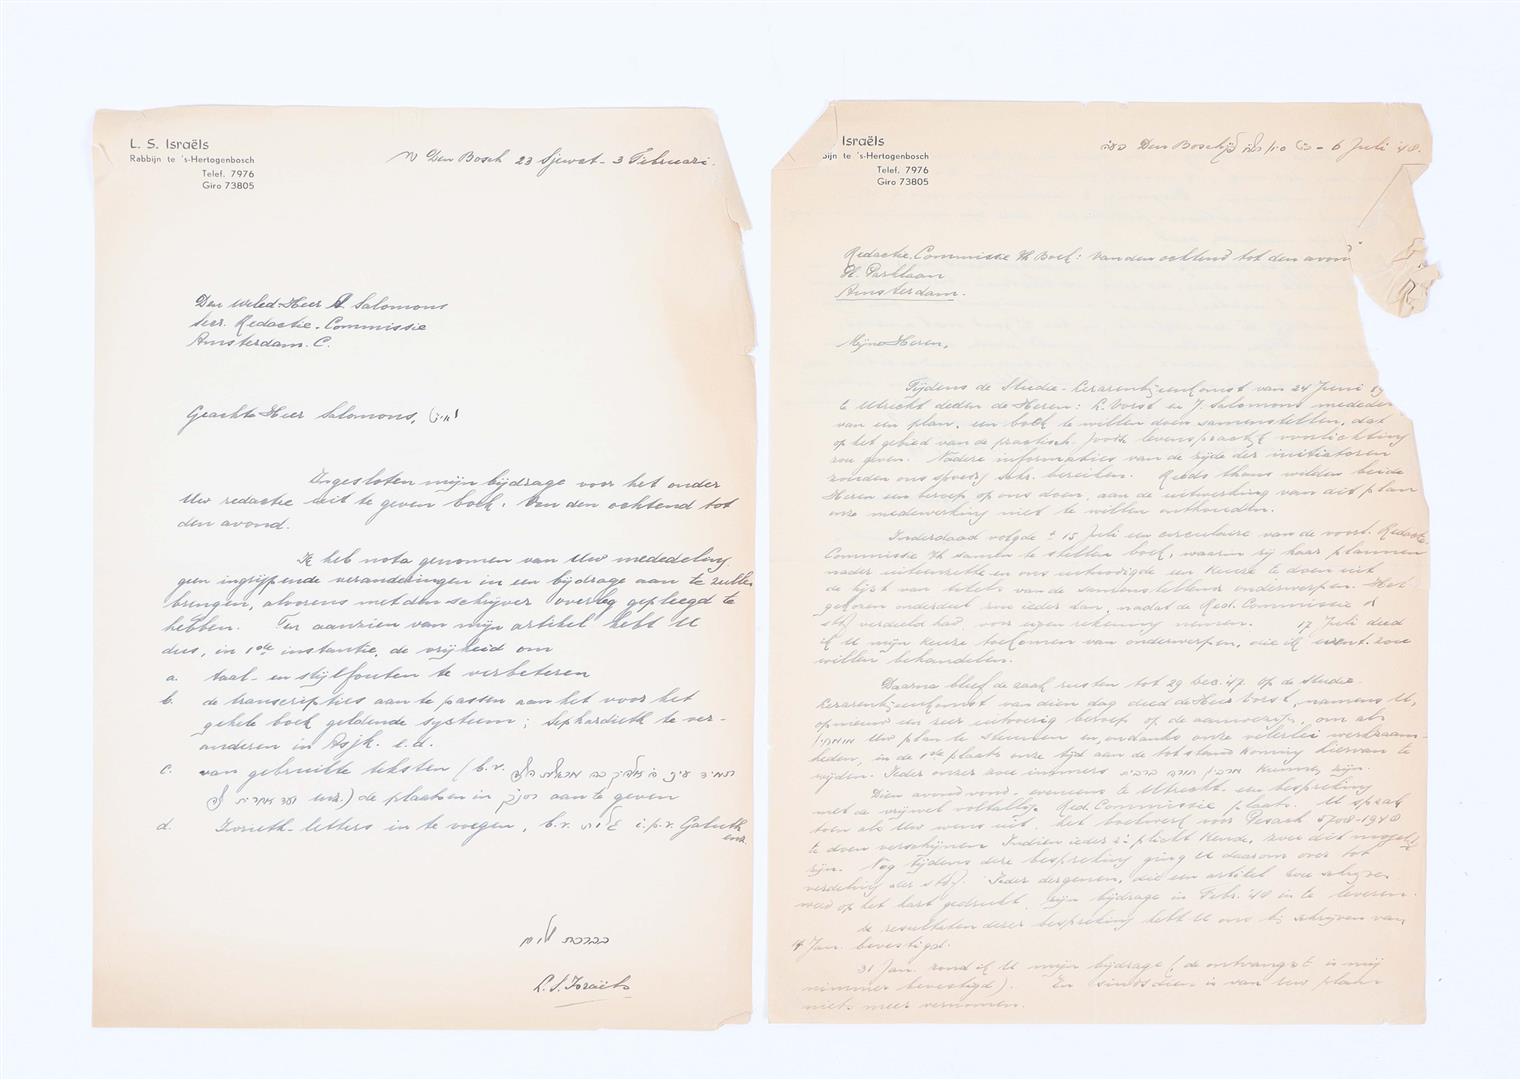 L. S. Israëls
Rabbijn te 's-Hertogenbosch
Telef. 7976
Giro 73805
Den Bosch 23 Sjewat - 3 Februari.
Den Weled. Heer Salomons
Secr. Redactie-Commissie
Amsterdam. C.
Geachte Heer Salomons,
Ingesloten mijn bijdrage voor het onder
Uw redactie uit te geven boek: Van den ochtend tot
den avond.
Ik heb nota genomen van Uw mededeling
geen ingrijpende veranderingen in een bijdrage aan te zullen
brengen, alvorens met den schrijver overleg gepleegd te
hebben. Ten aanzien van mijn artikel hebt U
dus, in 1ste instantie, de vrijheid om
a. taal- en stijlfouten te verbeteren
b. de transcripties aan te passen aan het voor het
gehele boek geldende systeem; Sephardieth te ver-
anderen in Asjk. e.d.
c. van gebruikte teksten (b.v.
enz.) de plaatsen in aan te geven
d. Ivrieth-letters in te voegen, b.v. גלות i.p.v. Galuth
enz.
בברכת
L. S. Israëls
Israëls
bijn te 's-Hertogenbosch
Telef. 7976
Giro 73805
Den Bosch - 6 Juli '48.
Redactie-Commissie Boek: Van den ochtend tot den avond
Pl. Parklaan
Amsterdam.
Mijne Heren,
Tijdens de Studie-Lerarenbijeenkomst van 24 Juni
te Utrecht deden de Heren: L. Vorst en J. Salomons mededel
van een plan, een boek te willen doen samenstellen, dat
op het gebied van de practisch-Joodse levenspraktijk voorlichting
zou geven. Nadere informaties van de zijde der initiatoren
zouden ons spoedig bereiken. Reeds thans wilden beide
Heren een beroep op ons doen, aan de uitwerking van dit plan
onze medewerking niet te willen onthouden.
Inderdaad volgde ± 15 Juli een circulaire van de voorl. Redactie-
Commissie samen te stellen boek, waarin zij haar plannen
nader uiteenzette en ons uitnodigde een keuze te doen uit
de lijst van titels van de samenstellende onderwerpen. Het
gekozen onderdeel zou ieder dan, nadat de Red. Commissie de
stof verdeeld had, voor eigen rekening nemen. 17 Juli deed
ik U mijn keuze toekomen van onderwerpen, die ik event. zou
willen behandelen.
Daarna bleef de zaak rusten tot 29 Dec. '47. Op de Studie-
Lerarenbijeenkomst van dien dag deed de Heer Vorst, namens U,
opnieuw een zeer uitvoerig beroep op de aanwezigen, om als
Uw plan te steunen en, ondanks onze velerlei werkzaam-
heden, in de 1ste plaats onze tijd aan de totstandkoming hiervan te
wijden. Ieder onzer zou immers kunnen zijn.
Dien avond vond - eveneens te Utrecht - een bespreking
met de vrijwel voltallige Red. Commissie plaats. U sprak
toen als Uw wens uit, het boekwerk voor Pesach 5708-1948
te doen verschijnen. Indien ieder z'n plicht kende, zou dit mogelijk
zijn. Nog tijdens deze bespreking ging U daarom over tot
verdeling der stof. Ieder dergenen, die een artikel zou schrijven
werd op het hart gedrukt, zijn bijdrage in Febr. '48 in te leveren.
De resultaten dezer bespreking hebt U ons bij schrijven van
Jan. bevestigd.
31 Jan. zond ik U mijn bijdrage (de ontvangst is mij
nimmer bevestigd). En sindsdien is van Uw plan
niets meer vernomen.